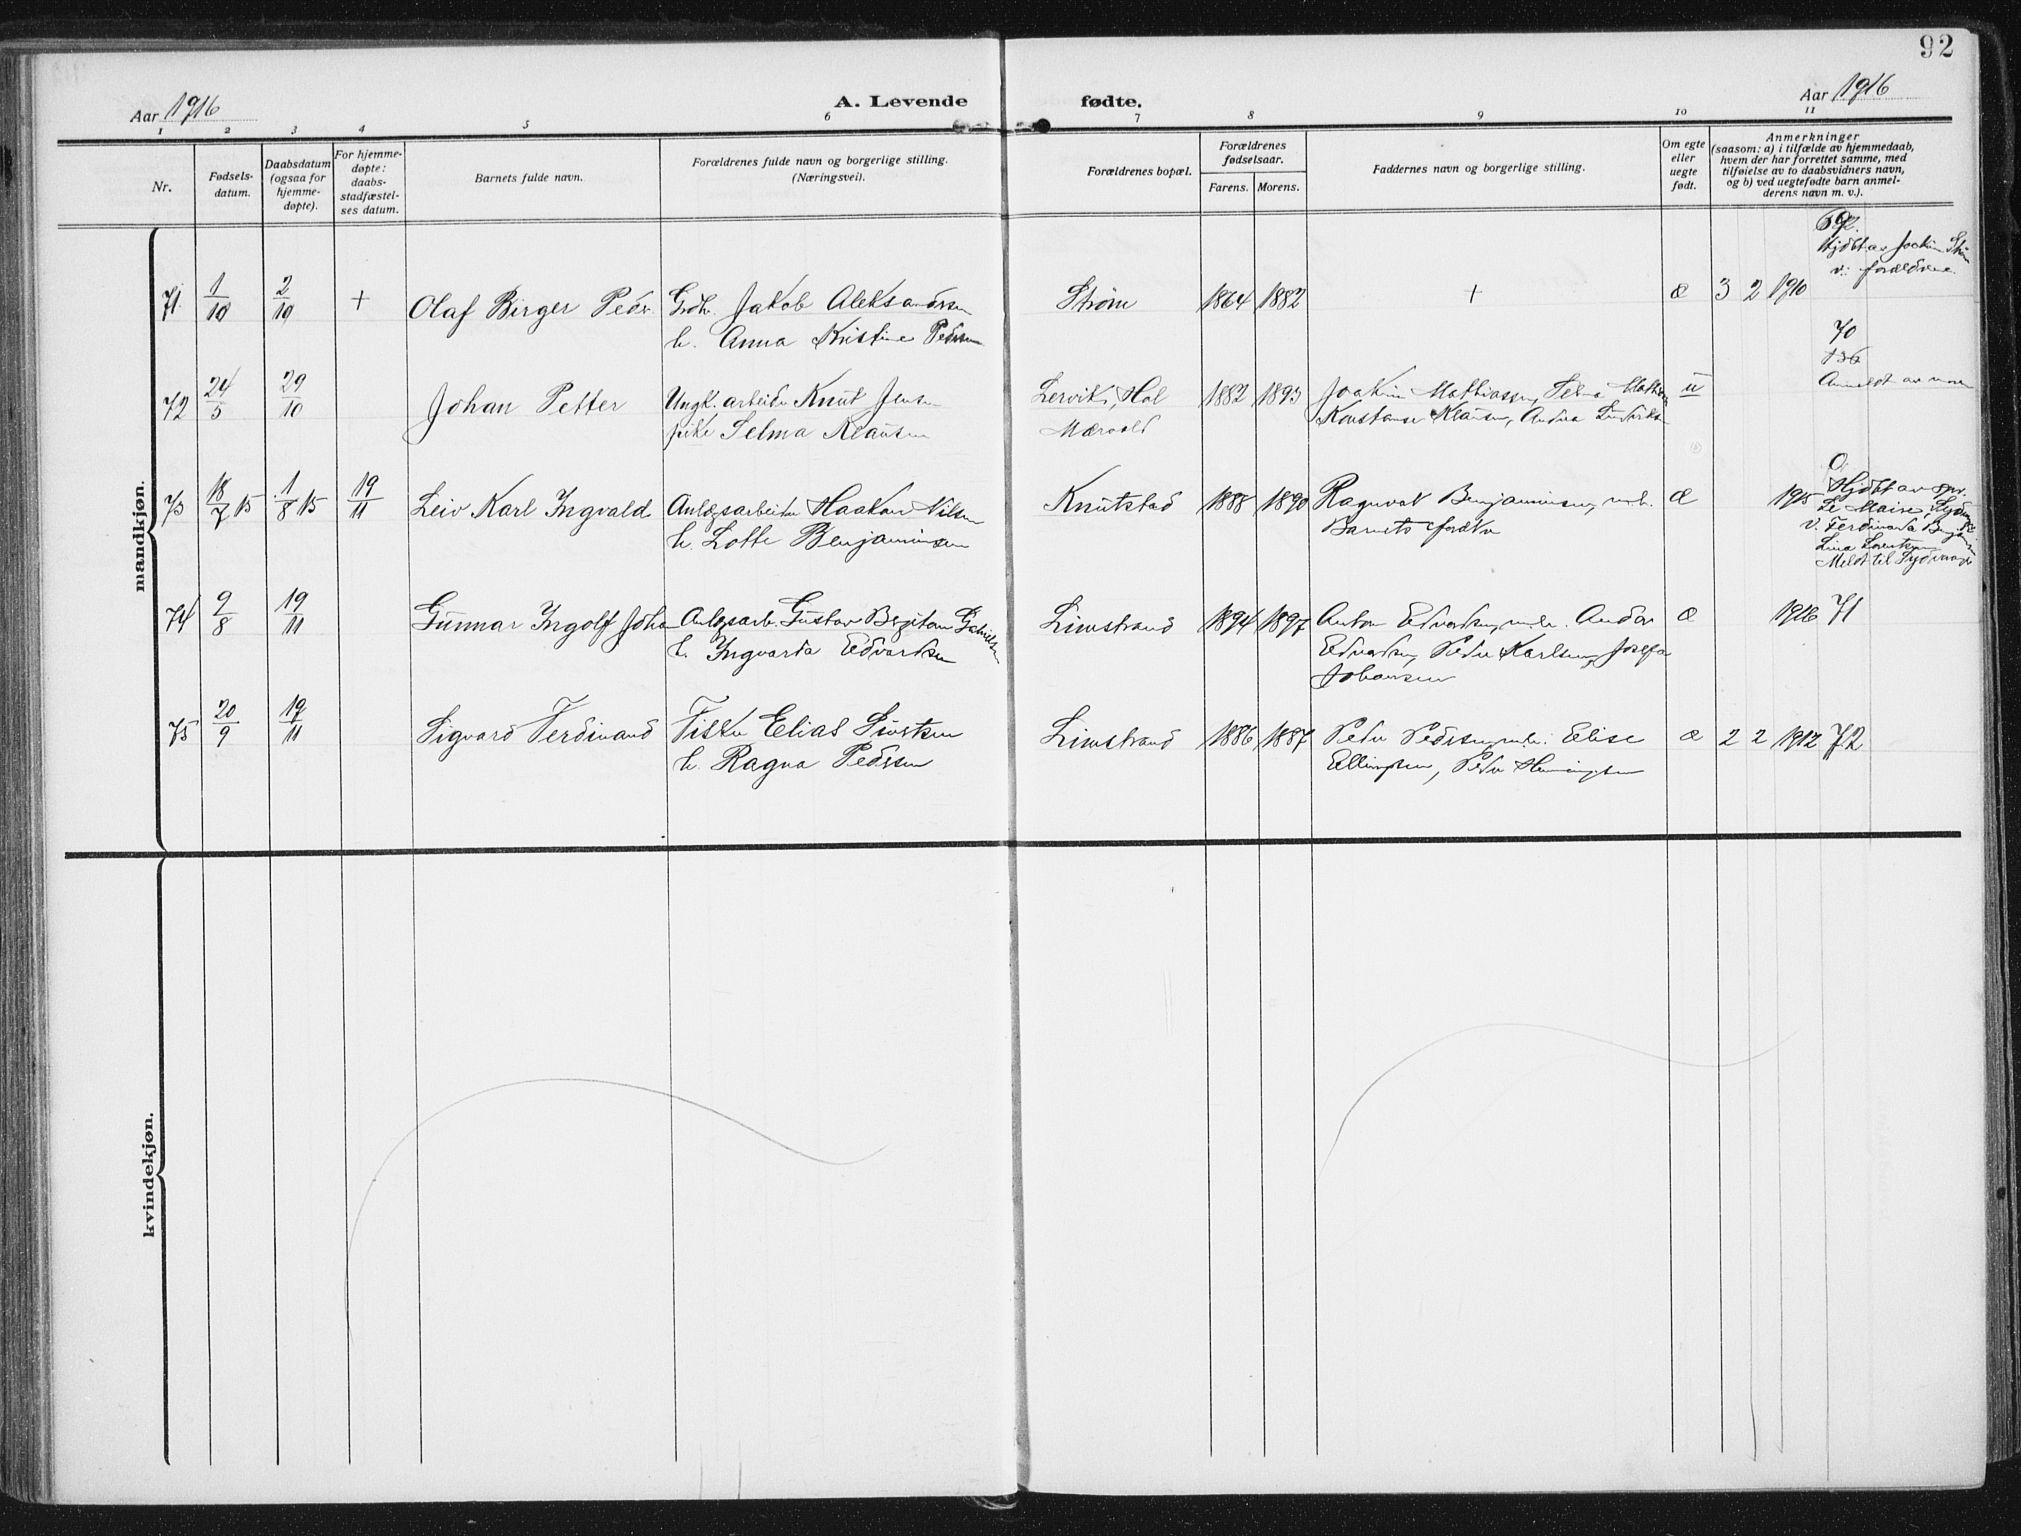 92
Aar 1916
A. Levende fødte.
Aar 1916
1 2 3 4 5 6 7 8 9 10 11
Nr.
Fødsels-
datum.
Daabsdatum
(ogsaa for
hjemme-
døpte).
For hjemme-
døpte:
daabs-
stadfæstel-
ses datum.
Barnets fulde navn.
Forældrenes fulde navn og borgerlige stilling.
(Næringsvei).
Forældrenes bopæl.
Forældrenes
fødselsaar.
Farens. Morens.
Faddernes navn og borgerlige stilling.
Om egte
eller
uegte
født.
Anmerkninger
(saasom: a) i tilfælde av hjemmedaab,
hvem der har forrettet samme, med
tilføielse av to daabsvidners navn,
og b) ved uegtefødte barn anmel-
derens navn m. v.).
mandkjøn.
71 1/10 2/10 + Olaf Birger Pedr. Jakob Aleksandersen Strøm 1864 1882 + æ 3 2 1910
h. Anna Kristine Pedersen
v. forældrene
72 24/5 29/10 Johan Petter Ungk. arbeider Knut Jensen Lervik, Hol 1882 1893 Joakim Mathiassen, u 70
pike Selma Klausen Konstanse Klausen, Andrea
Anmeldt av moren
73 18/7 15 1/8 15 19/11 Leiv Karl Ingvald Anlægsarbeider Haakon Nilsen Knutstad 1888 1890 Ragnvat Benjaminsen, m.h. æ 1915 0
h. Lotte Benjaminsen Barnets forældre
Hjdbt av
v. Ferdinanda
Lina Lorentsen
Meldt til
74 9/8 19/11 Gunnar Ingolf Johan Anlægsarb. Gustav Limstrand 1894 1897 Anton Edvardsen, m.h. Andor æ 1916 71
h. Ingvarda Edvardsen Edvardsen, Peder Karlsen, Josefa
Johansen
75 20/9 19/11 Sigvard Ferdinand Fisker Elias Sivertsen Limstrand 1886 1887 Peder Pedersen, m.h. Elise æ 2 2 1912 72
h. Ragna Pedersen Ellingsen, Peder Henningsen
kvindekjøn.